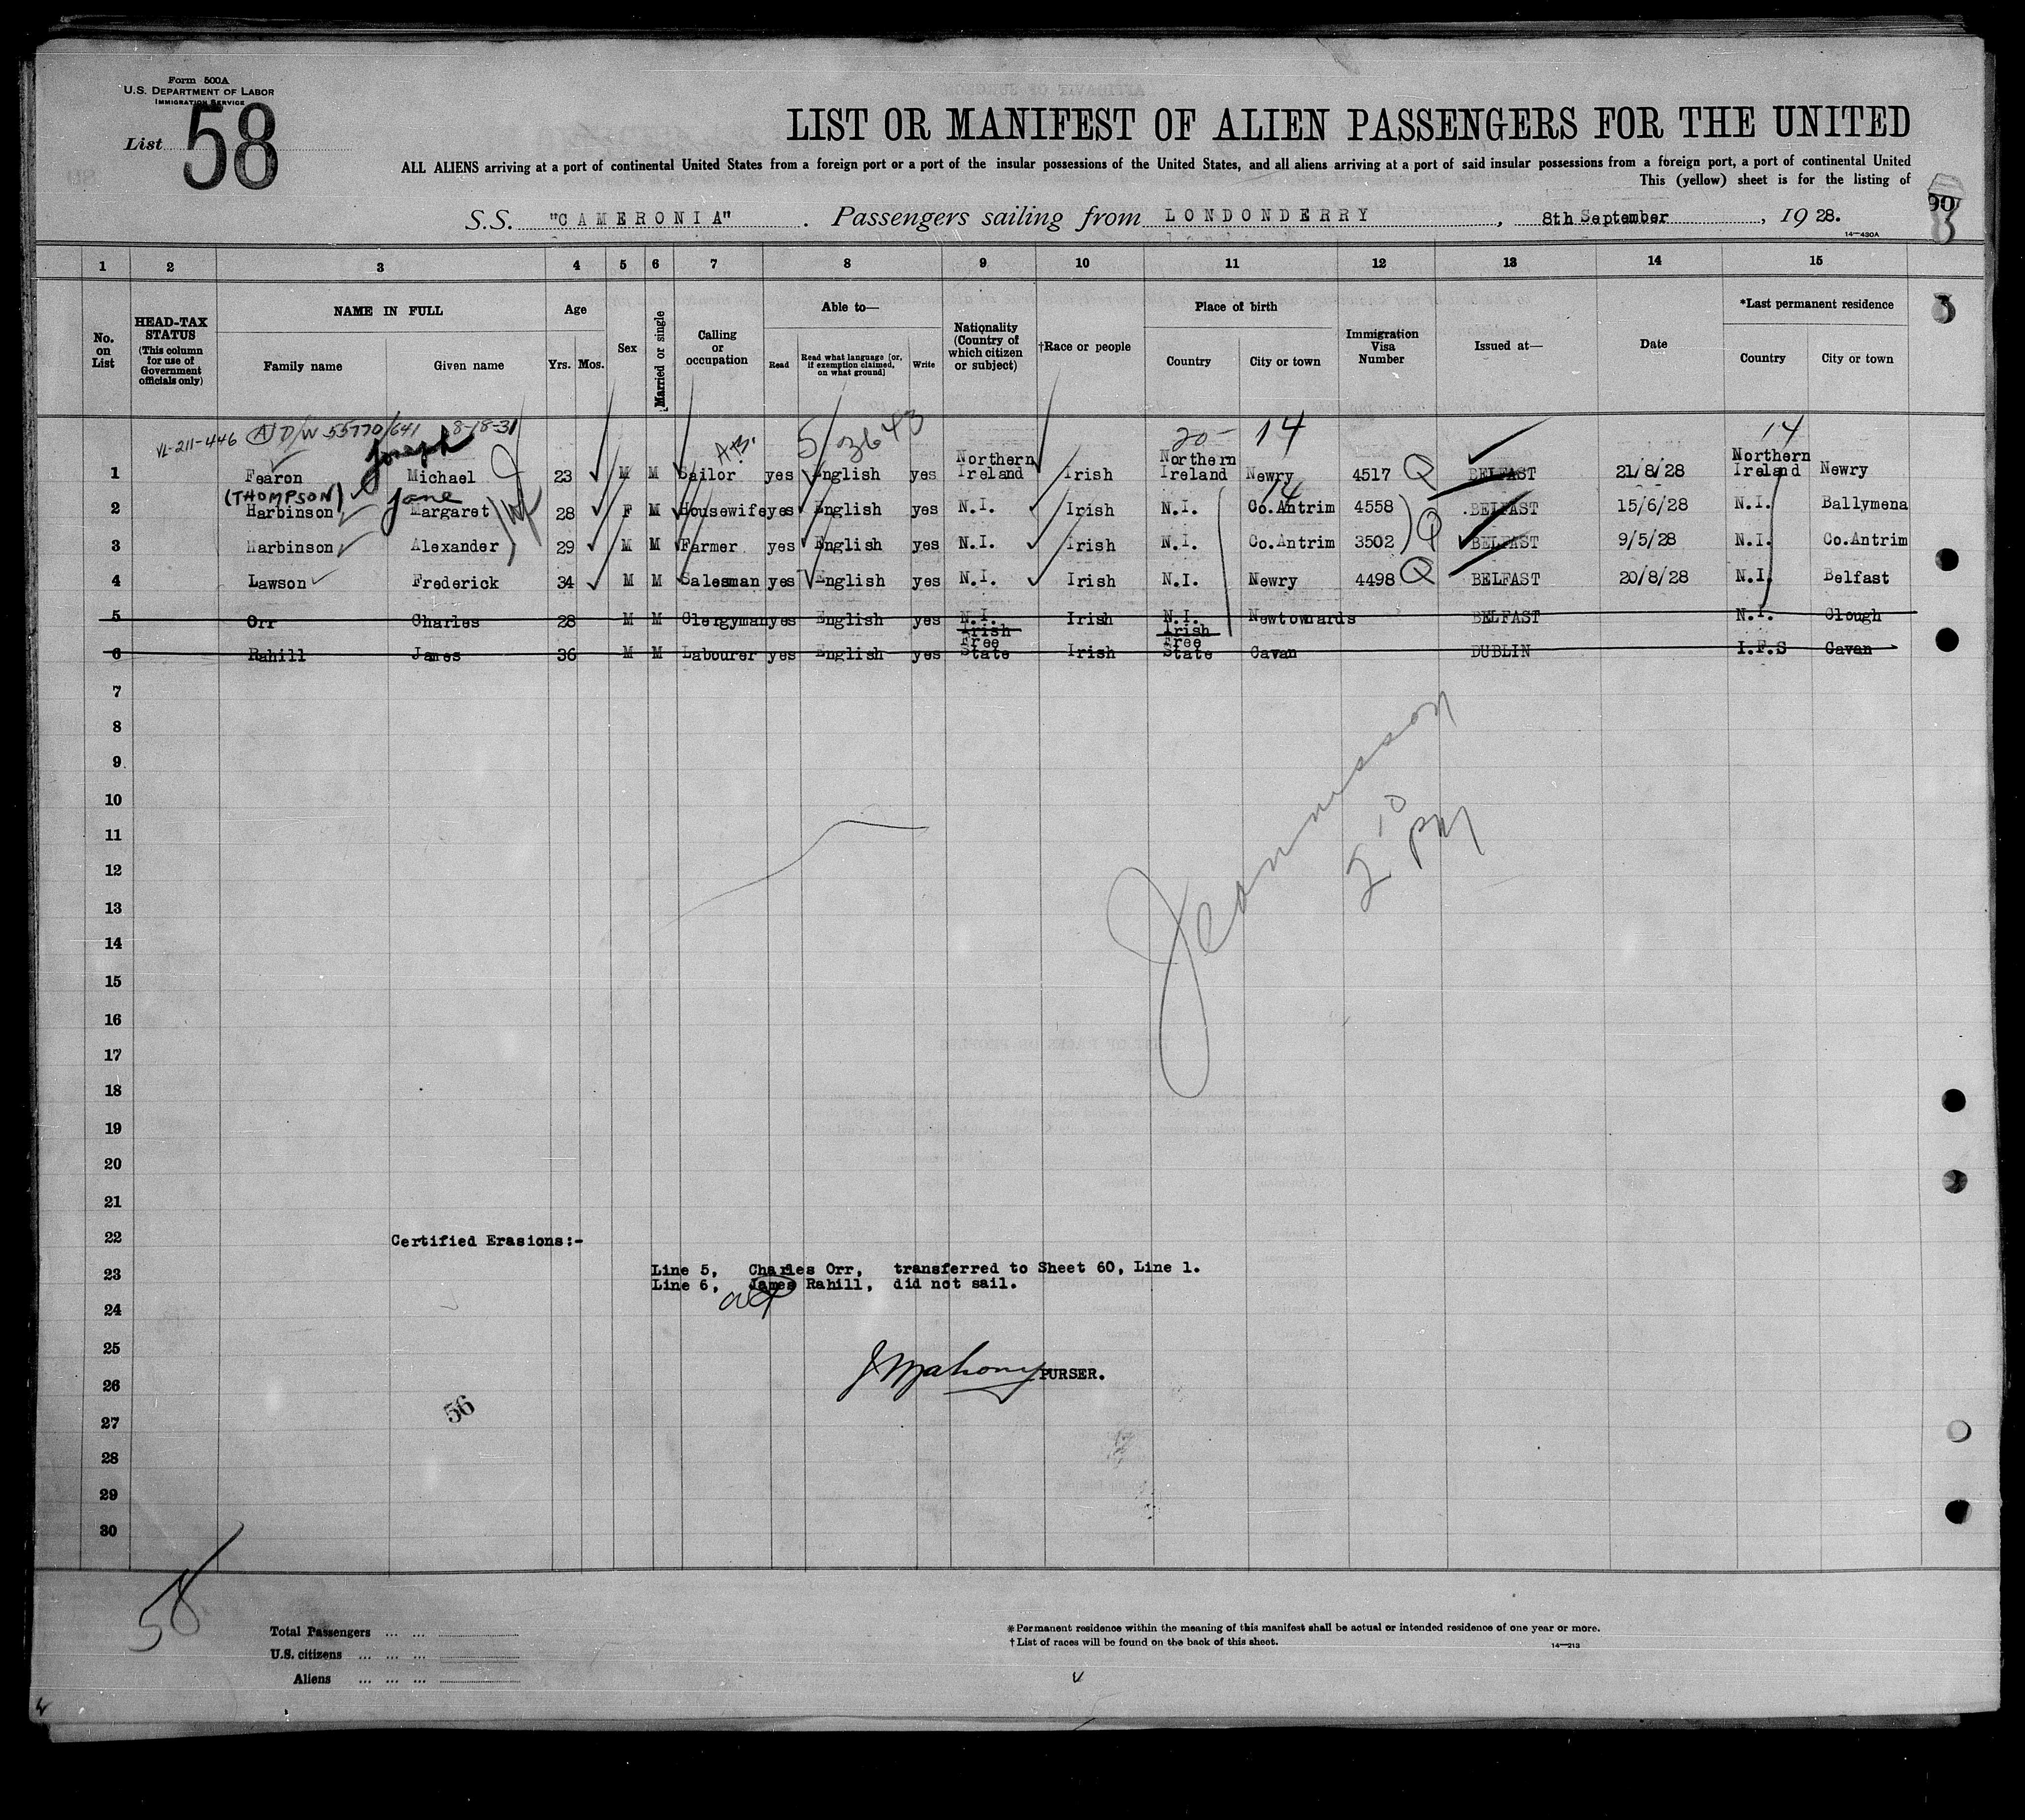 Form 500A
U.S. DEPARTMENT OF LABOR
IMMIGRATION SERVICE
List 58
LIST OR MANIFEST OF ALIEN PASSENGERS FOR THE UNITED
ALL ALIENS arriving at a port of continental United States from a foreign port or a port of the insular possessions of the United States, and all aliens arriving at a port of said insular possessions from a foreign port, a port of continental United
This (yellow) sheet is for the listing of
90
S.S. "CAMERONIA" . Passengers sailing from LONDONDERRY , 8th September , 19 28.
14—430A
1 2 3 4 5 6 7 8 9 10 11 12 13 14 15
No. on List
HEAD-TAX STATUS (This column for use of Government officials only)
NAME IN FULL Family name Given name
Age Yrs. Mos.
Sex
Married or single
Calling or occupation
Able to— Read Read what language [or, if exemption claimed, on what ground] Write
Nationality (Country of which citizen or subject)
†Race or people
Place of birth Country City or town
Immigration Visa Number
Issued at—
Date
*Last permanent residence Country City or town
VL-211-446 A D/W 55770/641 8-18-31 5/3643 20- 14 14
Joseph
1 Fearon Michael 23 M M Sailor yes English yes Northern Ireland Irish Northern Ireland Newry 4517 Q BELFAST 21/8/28 Northern Ireland Newry
(THOMPSON) Jane 14
2 Harbinson Margaret 28 F M Housewife yes English yes N.I. Irish N.I. Co.Antrim 4558 BELFAST 15/6/28 N.I. Ballymena
3 Harbinson Alexander 29 M M Farmer yes English yes N.I. Irish N.I. Co.Antrim 3502 Q BELFAST 9/5/28 N.I. Co.Antrim
4 Lawson Frederick 34 M M Salesman yes English yes N.I. Irish N.I. Newry 4498 Q BELFAST 20/8/28 N.I. Belfast
5 Orr Charles 28 M M Clergyman yes English yes N.I. Irish N.I. Newtownards BELFAST N.I. Clough
6 Rahill James 36 M M Labourer yes English yes Irish Free State Irish Irish Free State Cavan DUBLIN I.F.S Cavan
7
8
9
10
11
12
13
14
15
16
17
18
19
20
21
22
23
24
25
26
27
28
29
30
2 10 PM
Certified Erasions:-
Line 5, Charles Orr, transferred to Sheet 60, Line 1.
Line 6, James Rahill, did not sail.
J Mahony PURSER.
56
58
Total Passengers ... ...
U.S. citizens ... ... ...
Aliens ... ... ...
*Permanent residence within the meaning of this manifest shall be actual or intended residence of one year or more.
†List of races will be found on the back of this sheet.
14—213